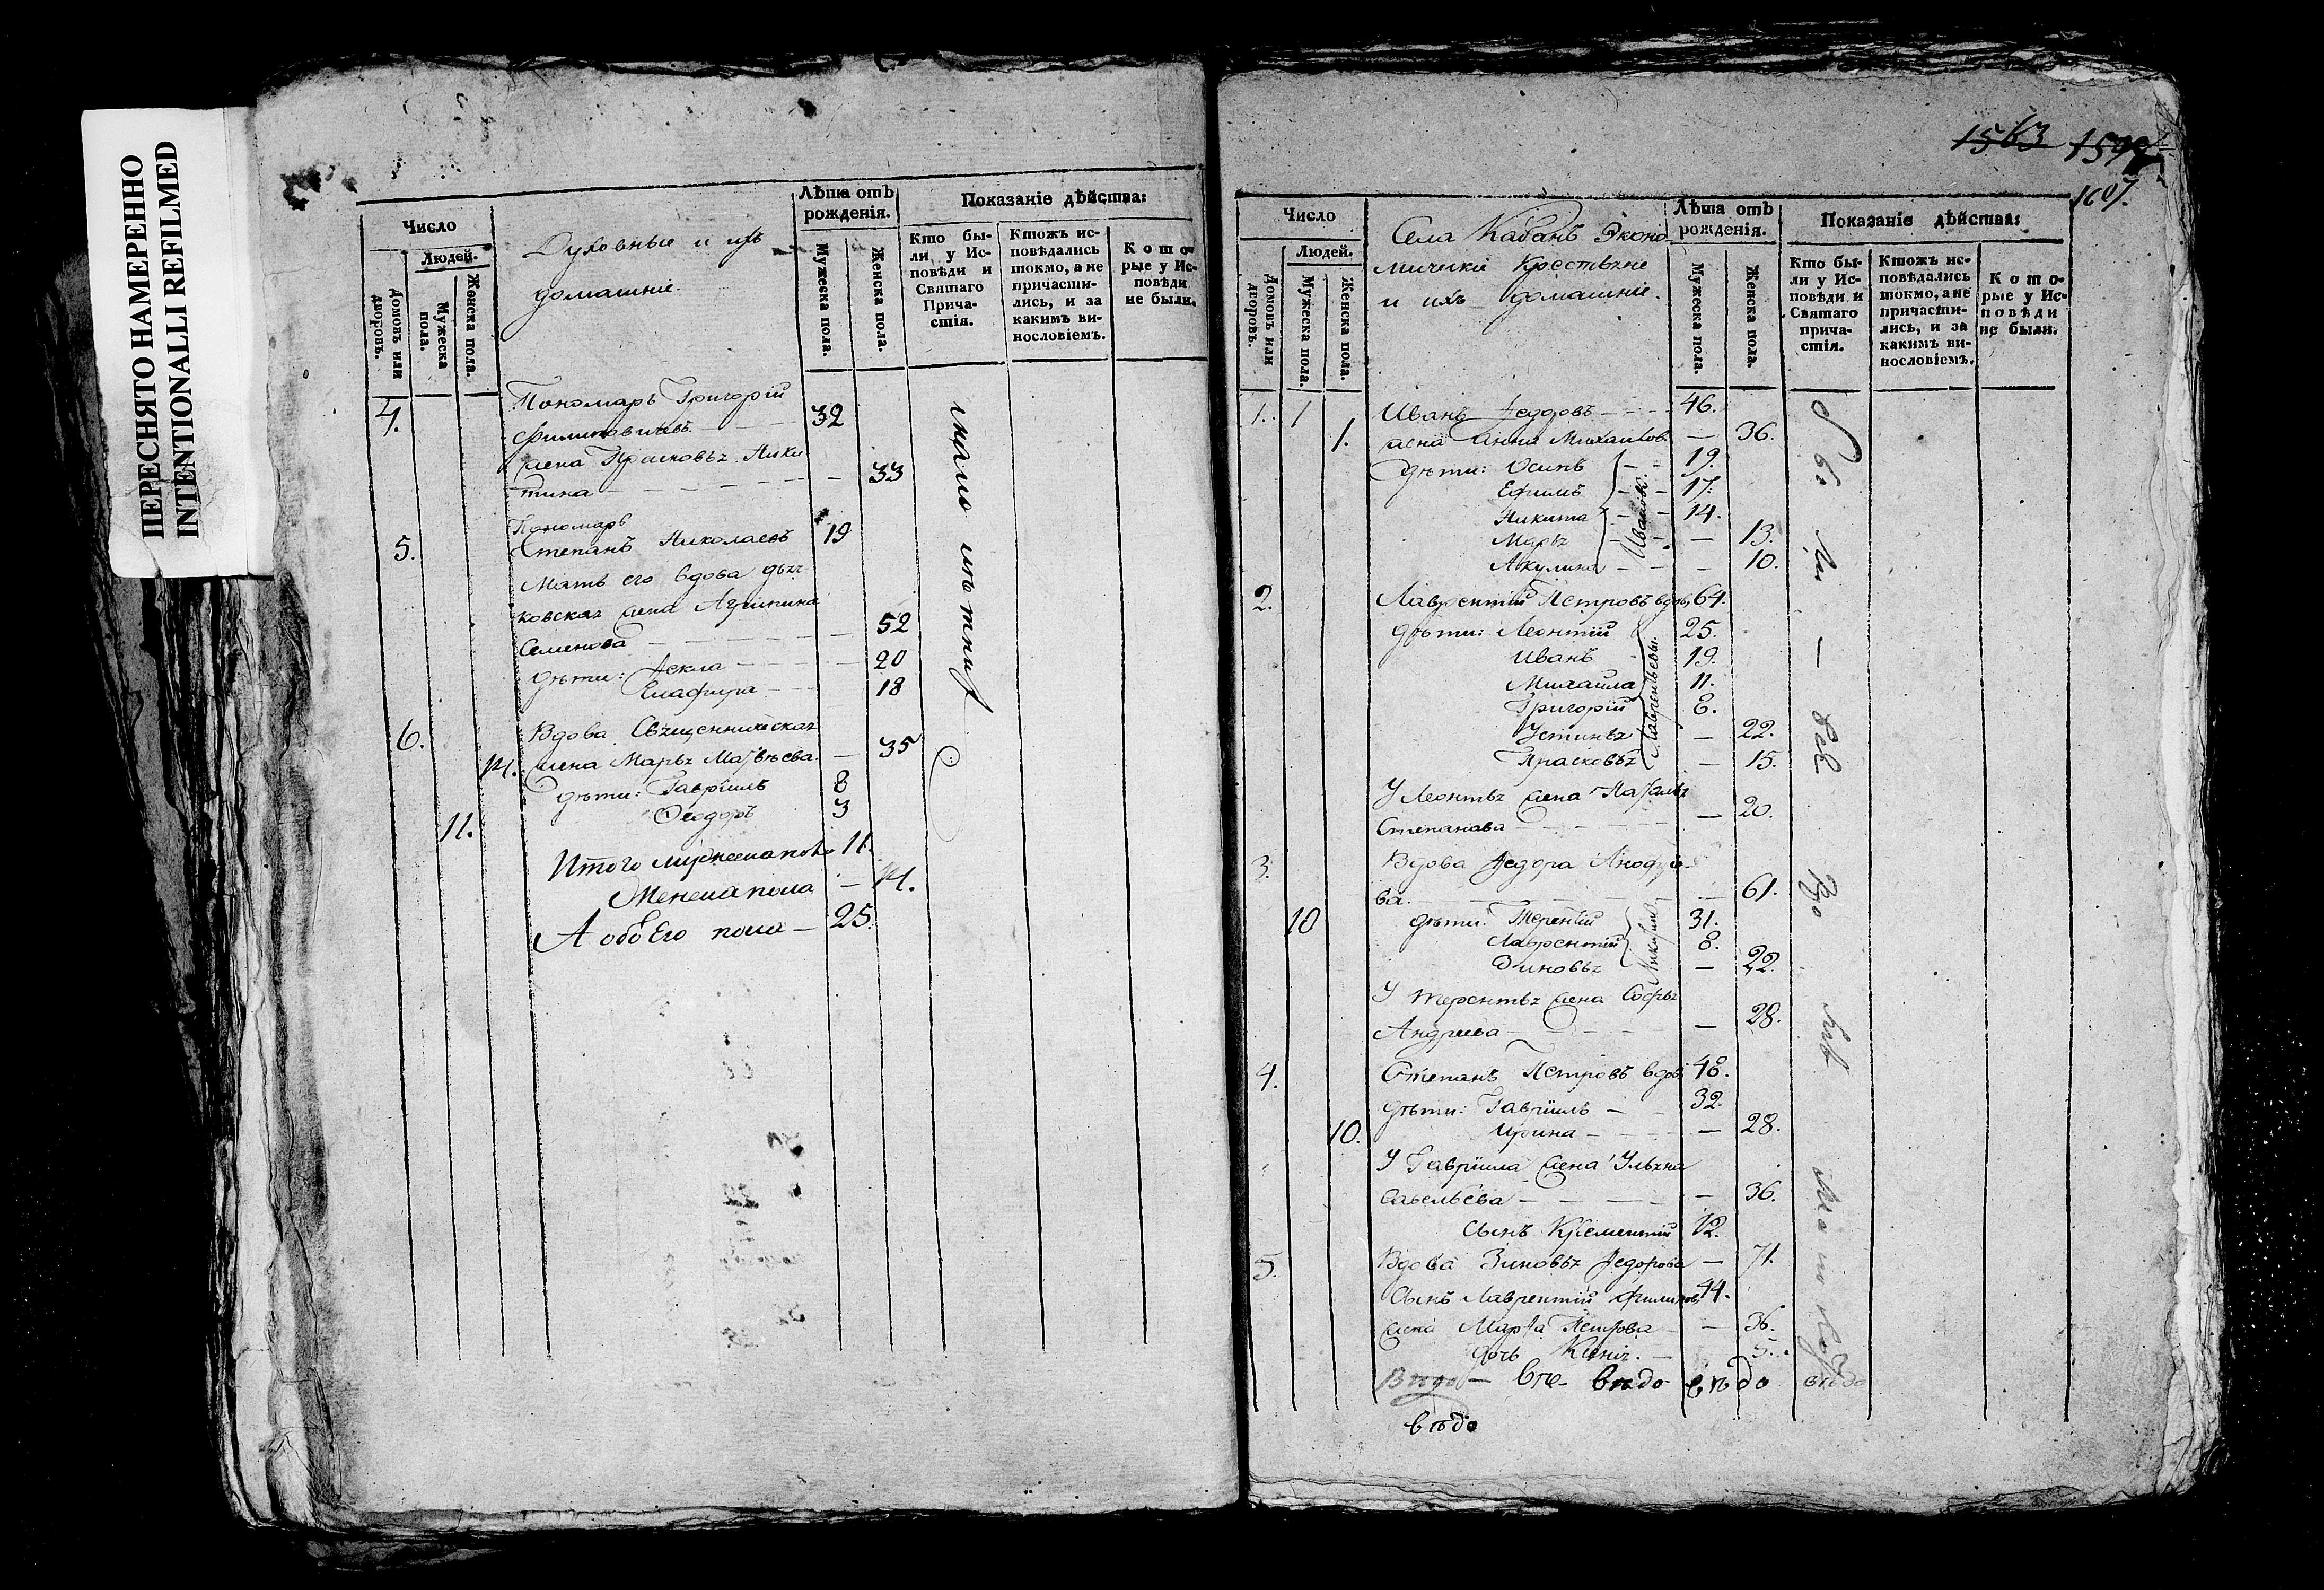 ПЕРЕСНЯТО НАМЕРЕННО
INTENTIONALLI REFILMED
Число
Людей.
Домовъ или дворовъ.
Мужеска пола.
Женска пола.
Духовные и ихъ
домашніе.
Лѣта отъ рожденія.
Мужеска пола.
Женска пола.
Показаніе дѣйства:
Кто бы-
ли у Ис-
повѣди и
Святаго
Прича-
стія.
Ктожъ ис-
повѣдались
токмо, а не
причасти-
лись, и за
какимъ ви-
нословіемъ.
Кото-
рые у Ис-
повѣди
не были.
4. Пономарь Григорій
Филиповичевъ 32
жена Прасковья Ники
тина — 33
Пономарь
5. Степанъ Николаевъ 19
Мать его вдова дья-
ковская жена Агрипина
Семенова — 52
дѣти: Ѳекла — 20
Глафира 18
6. Вдова Священническая
14. жена Марья Матвѣева — 35
дѣти: Гавріилъ 8
Ѳеодоръ 3
11.
Итого мужеска полу 11.
Женска пола — 14.
А обоего пола — 25.
1563 1607.
Число
Людей.
Домовъ или дворовъ.
Мужеска пола.
Женска пола.
Села Кабанъ Эконо
мическіе Крестьяне
и ихъ домашніе.
Лѣта отъ рожденія.
Мужеска пола.
Женска пола.
Показаніе дѣйства:
Кто бы-
ли у Ис-
повѣди и
Святаго
прича-
стія.
Ктожъ ис-
повѣдались
токмо, а не
причасти-
лись, и за
какимъ ви-
нословіемъ.
Кото-
рые у Ис-
повѣди
не были.
1. 1 Иванъ Ѳедоровъ 46.
1. жена Анна Михайлов. — 36.
дѣти: Осипъ 19.
Ефимъ 17.
Никита 14.
Марья — 13.
Акулина — 10.
Ивановы
2. Лаврентій Петровъ вдов. 64.
дѣти: Леонтій 25.
Иванъ 19.
Михайла 11.
Григорій 8.
Устинья — 22.
Прасковья — 15.
Лаврентьевы
У Леонтья жена Наталья
Степанова — 20.
3. Вдова Ѳедора
ва. — 61.
10 дѣти: Терентій 31.
Лаврентій 8.
Зиновья — 22.
У Терентья жена Софья
Андреева — 28.
4. Степанъ Петровъ вдов. 48.
дѣти: Гавріилъ 32.
10. Ирина — 28.
У Гавріила жена Ульяна
Савельева — 36.
сынъ Клементій 12.
5. Вдова Зиновья Ѳедорова — 71.
Сынъ Лаврентій Филипов. 44.
жена Марѳа Петрова — 36.
дочь Ксенія — 5.